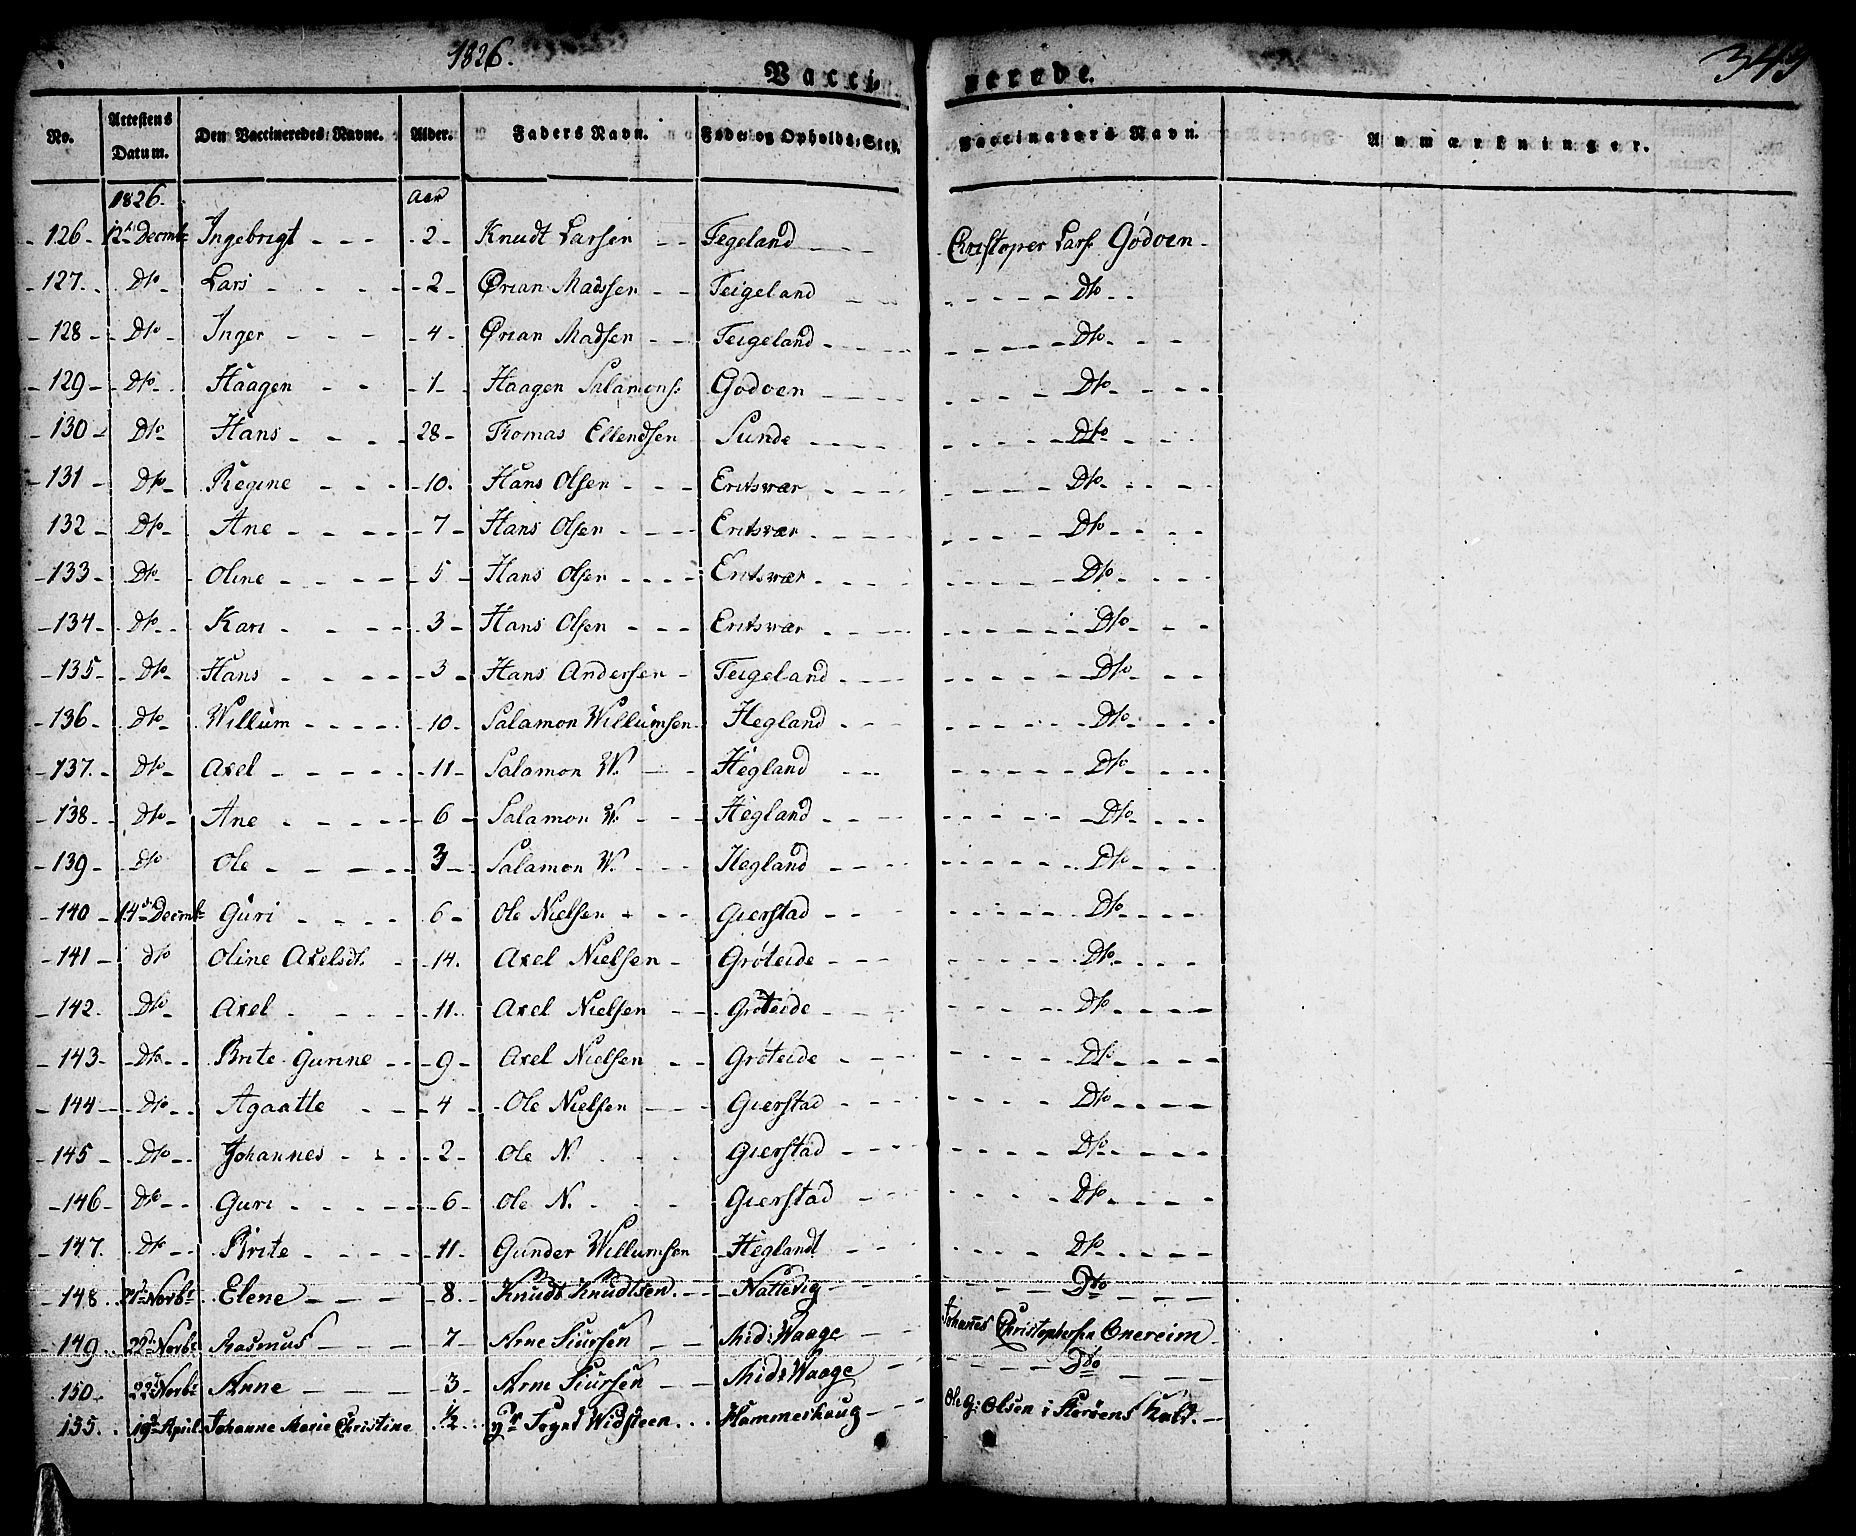 1826.
Vaccinerede.
349
No. | Attestens Datum. | Den Vaccineredes Navne. | Alder. | Faders Navn. | Føde- og Opholds-Sted. | Vaccinateurs Navn. | Anmærkninger.
1826. | Aar
126 | 12te Decmbr | Ingebrigt | 2 | Knudt Larsen | Tegeland | Christoper Lars: Godøen
127 | Dto | Lars | 2 | Ørian Madssen | Teigeland | Dto
128 | Dto | Inger | 4 | Ørian Madsen | Teigeland | Dto
129 | Dto | Haagen | 1 | Haagen Salamons: | Godøen | Dto
130 | Dto | Hans | 28 | Thomas Ellendsen | Sunde | Dto
131 | Dto | Regine | 10 | Hans Olsen | Eritsvær | Dto
132 | Dto | Ane | 7 | Hans Olsen | Eritsvær | Dto
133 | Dto | Oline | 5 | Hans Olsen | Eritsvær | Dto
134 | Dto | Kari | 3 | Hans Olsen | Eritsvær | Dto
135 | Dto | Hans | 3 | Hans Andersen | Teigeland | Dto
136 | Dto | Willum | 10 | Salamon Willumsen | Hegland | Dto
137 | Dto | Axel | 11 | Salamon W. | Hegland | Dto
138 | Dto | Ane | 6 | Salamon W. | Hegland | Dto
139 | Dto | Ole | 3 | Salamon W. | Hegland | Dto
140 | 14de Decmbr | Guri | 6 | Ole Nielsen | Gierstad | Dto
141 | dto | Oline Axelsdt. | 14. | Axel Nielsen | Grøteide | Dto
142. | Dto | Axel | 11. | Axel Nielsen | Grøteide | Dto
143 | Dto | Brite Gurine | 9 | Axel Nielsen | Grøteide | Dto
144 | Dto | Agaatte | 4 | Ole Nielsen | Gierstad | Dto
145 | Dto | Johannes | 2 | Ole N. | Gierstad | Dto
146 | Dto | Guri | 6 | Ole N. | Gierstad | Dto
147. | Dto | Brite | 11 | Gunder Willumsen | Heglandt | Dto
148 | 21de Novbr | Elene | 8 | Knudt Knudtsen | Nattevig | Dto
149 | 22de Novbr | Rasmus | 7 | Arne Siursen | Mid: Waage | Johannes Christophersen Enereim
150 | 22de Novbr | Anne | 3 | Arne Siursen | Mid: Waage | Dto
155. | 19de April | Johanne Marie Christine | ½ | Hr Fogd Widsteen | Hammerhaug | Ole G: Olsen i Storøens Kald.